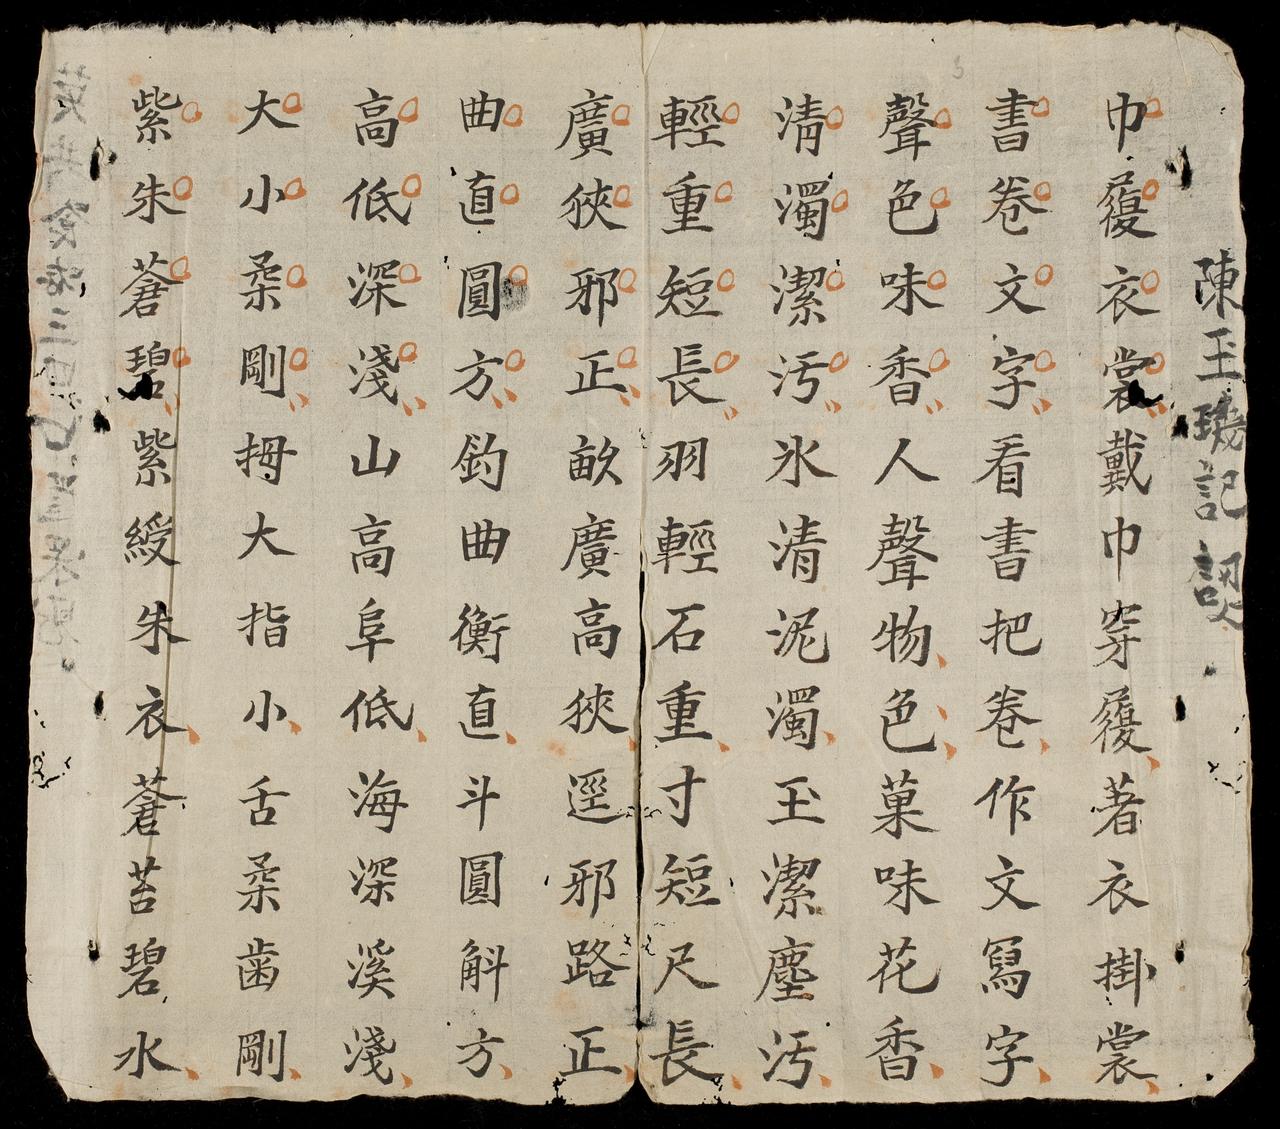 陳玉璣記
巾履衣裳戴巾穿履著衣掛裳
書卷文字看書把卷作文寫字
聲色味香人聲物色菓味花香
清濁潔汚氷清泥濁玉潔塵汚
輕重短長羽輕石重寸短尺長
廣狹邪正畝廣高狹逕邪路正
曲直圓方鈎曲衡直斗圓斛方
高低深淺山高阜低海深溪淺
大小柔剛拇大指小舌柔歯剛
紫朱蒼碧紫綬朱衣蒼苔碧水